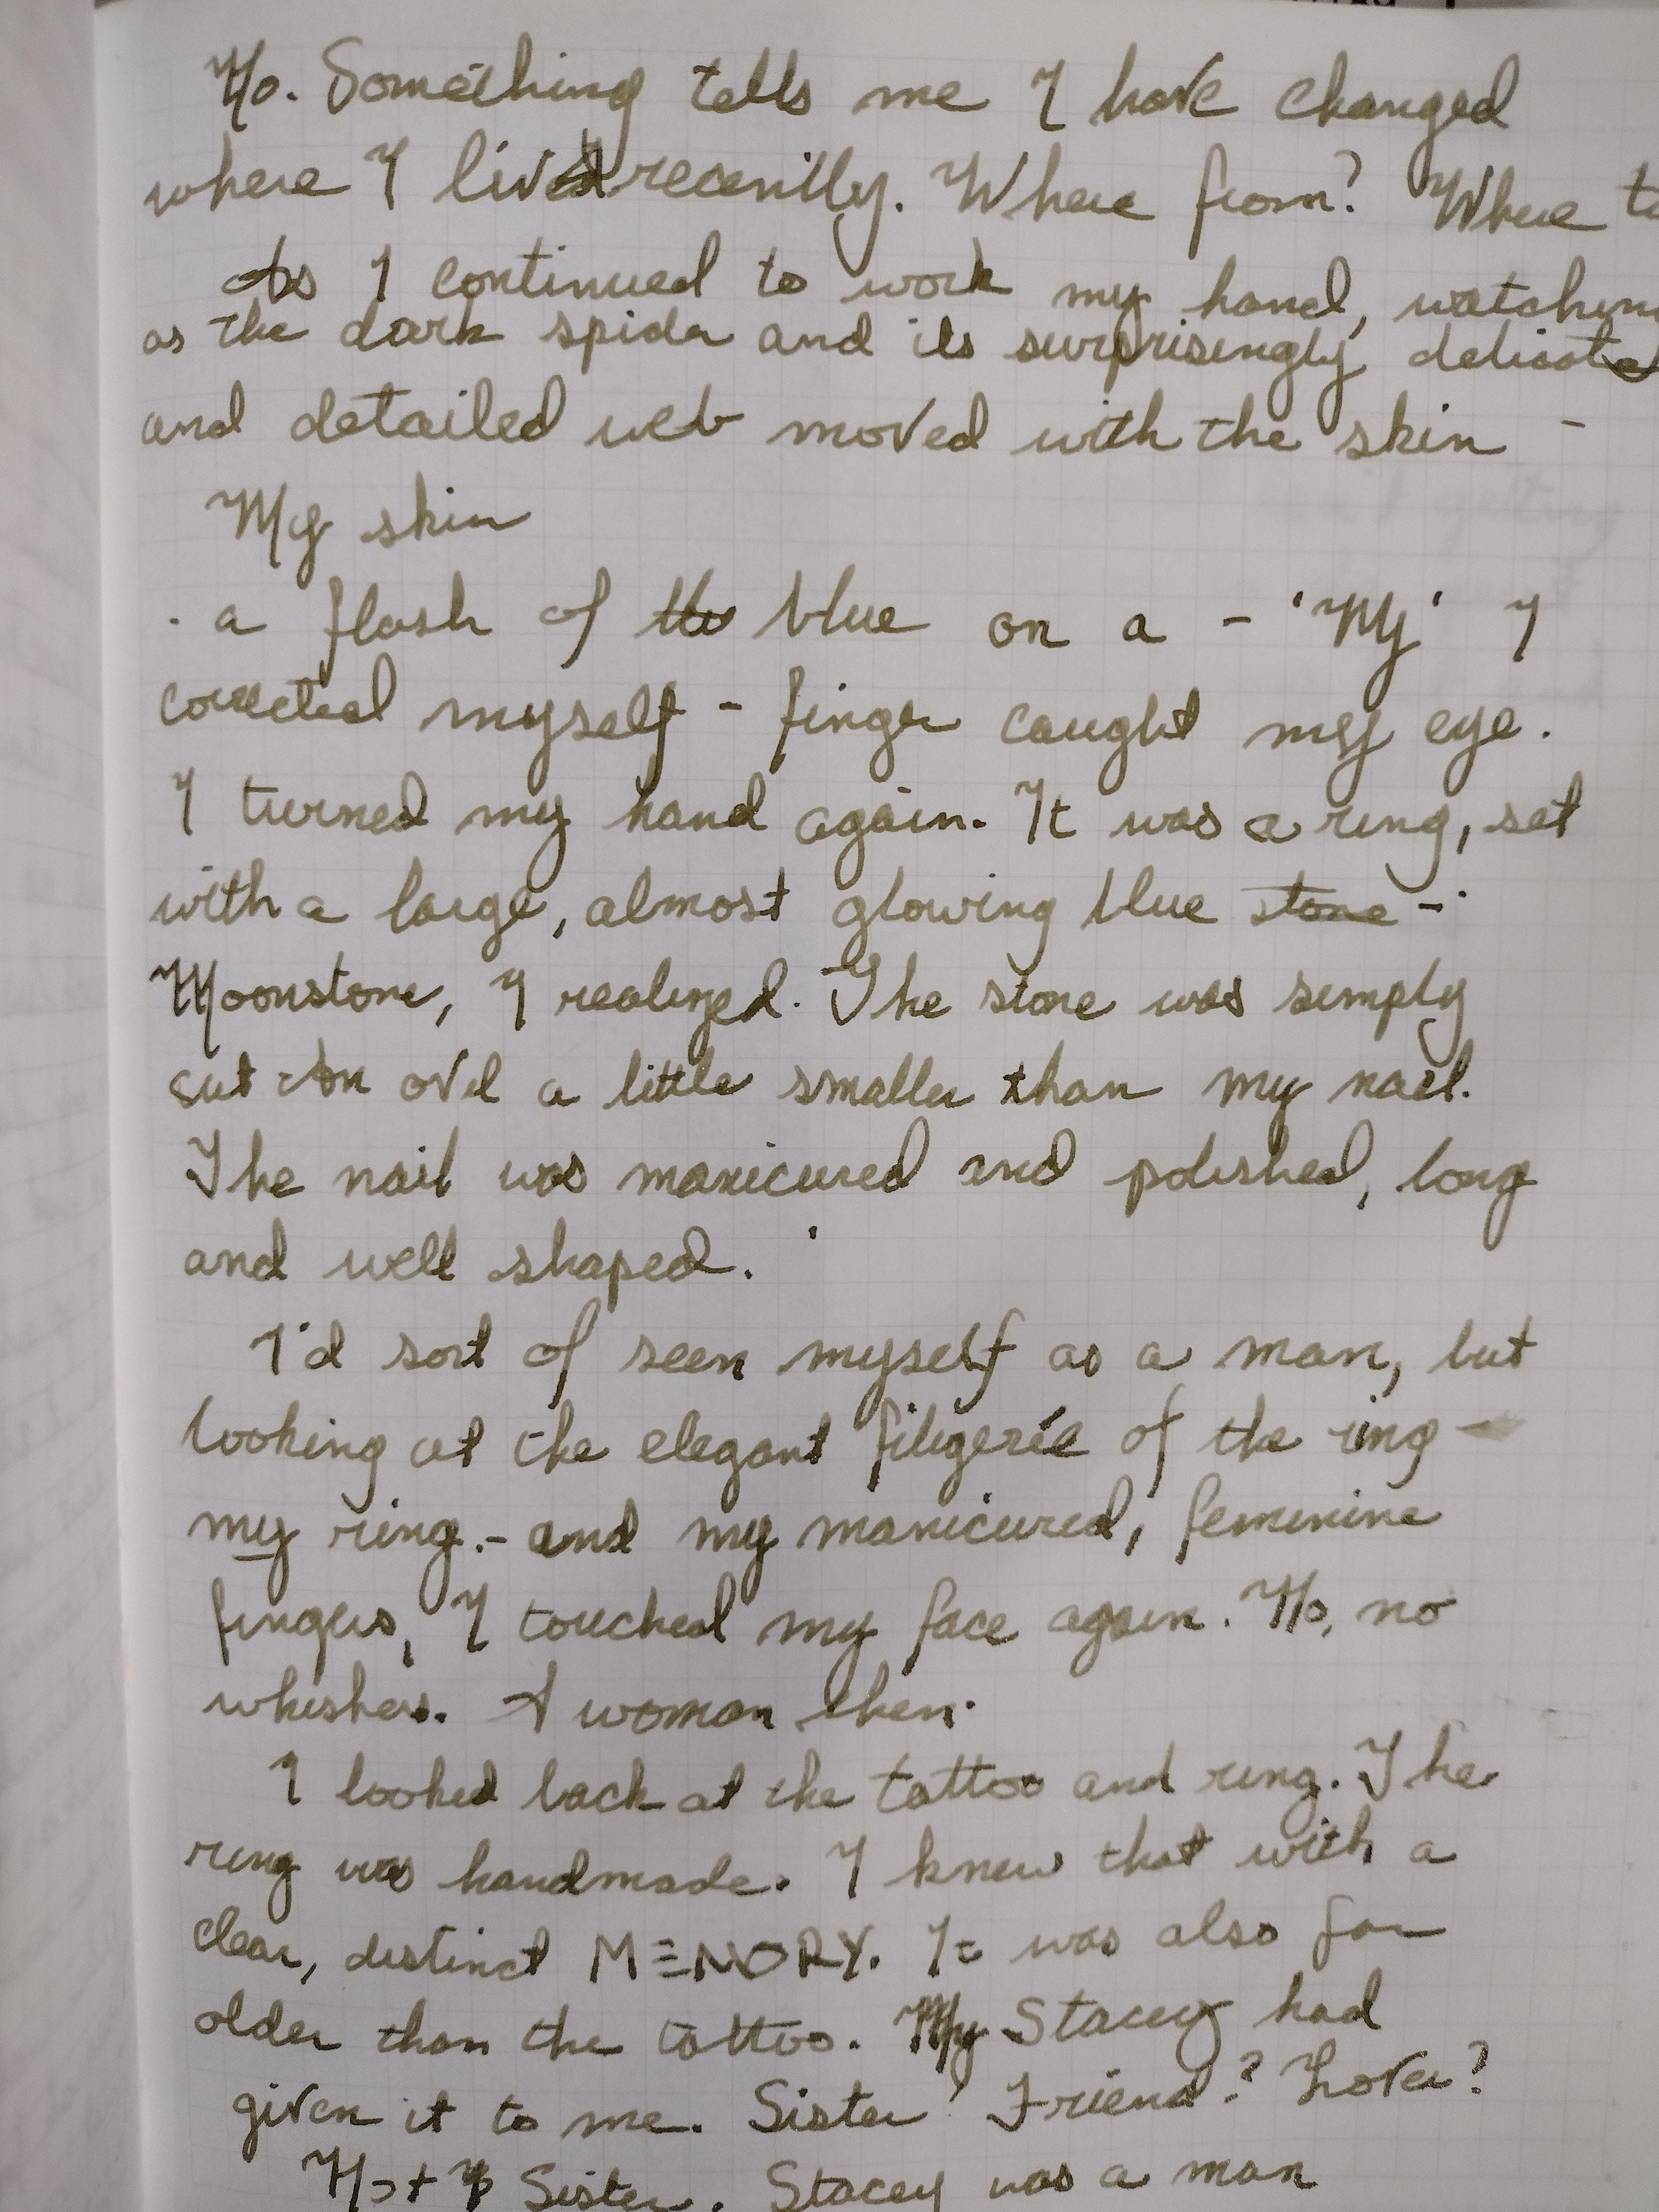 No. Something tells me I have changed
where I lived recently. Where from? Where to
As I continued to work my hand, watching
as the dark spider and its surprisingly delicate
and detailed web moved with the skin -
My skin
- a flash of the blue on a - 'My' I
corrected myself - finger caught my eye.
I turned my hand again. It was a ring, set
with a large, almost glowing blue stone -
Moonstone, I realized. The stone was simply
cut An ovel a little smaller than my nail.
The nail was manicured and polished, long
and well shaped.
I'd sort of seen myself as a man, but
looking at the elegant filigerie of the ring -
my ring. - and my manicured, feminine
fingers, I touched my face again. No, no
whiskers. A woman then.
I looked back at the tattoo and ring. The
ring was handmade. I knew that with a
clear, distinct MEMORY. It was also far
older than the tattoo. My Stacey had
given it to me. Sister? Friend? Lover?
Not Sister. Stacey was a man